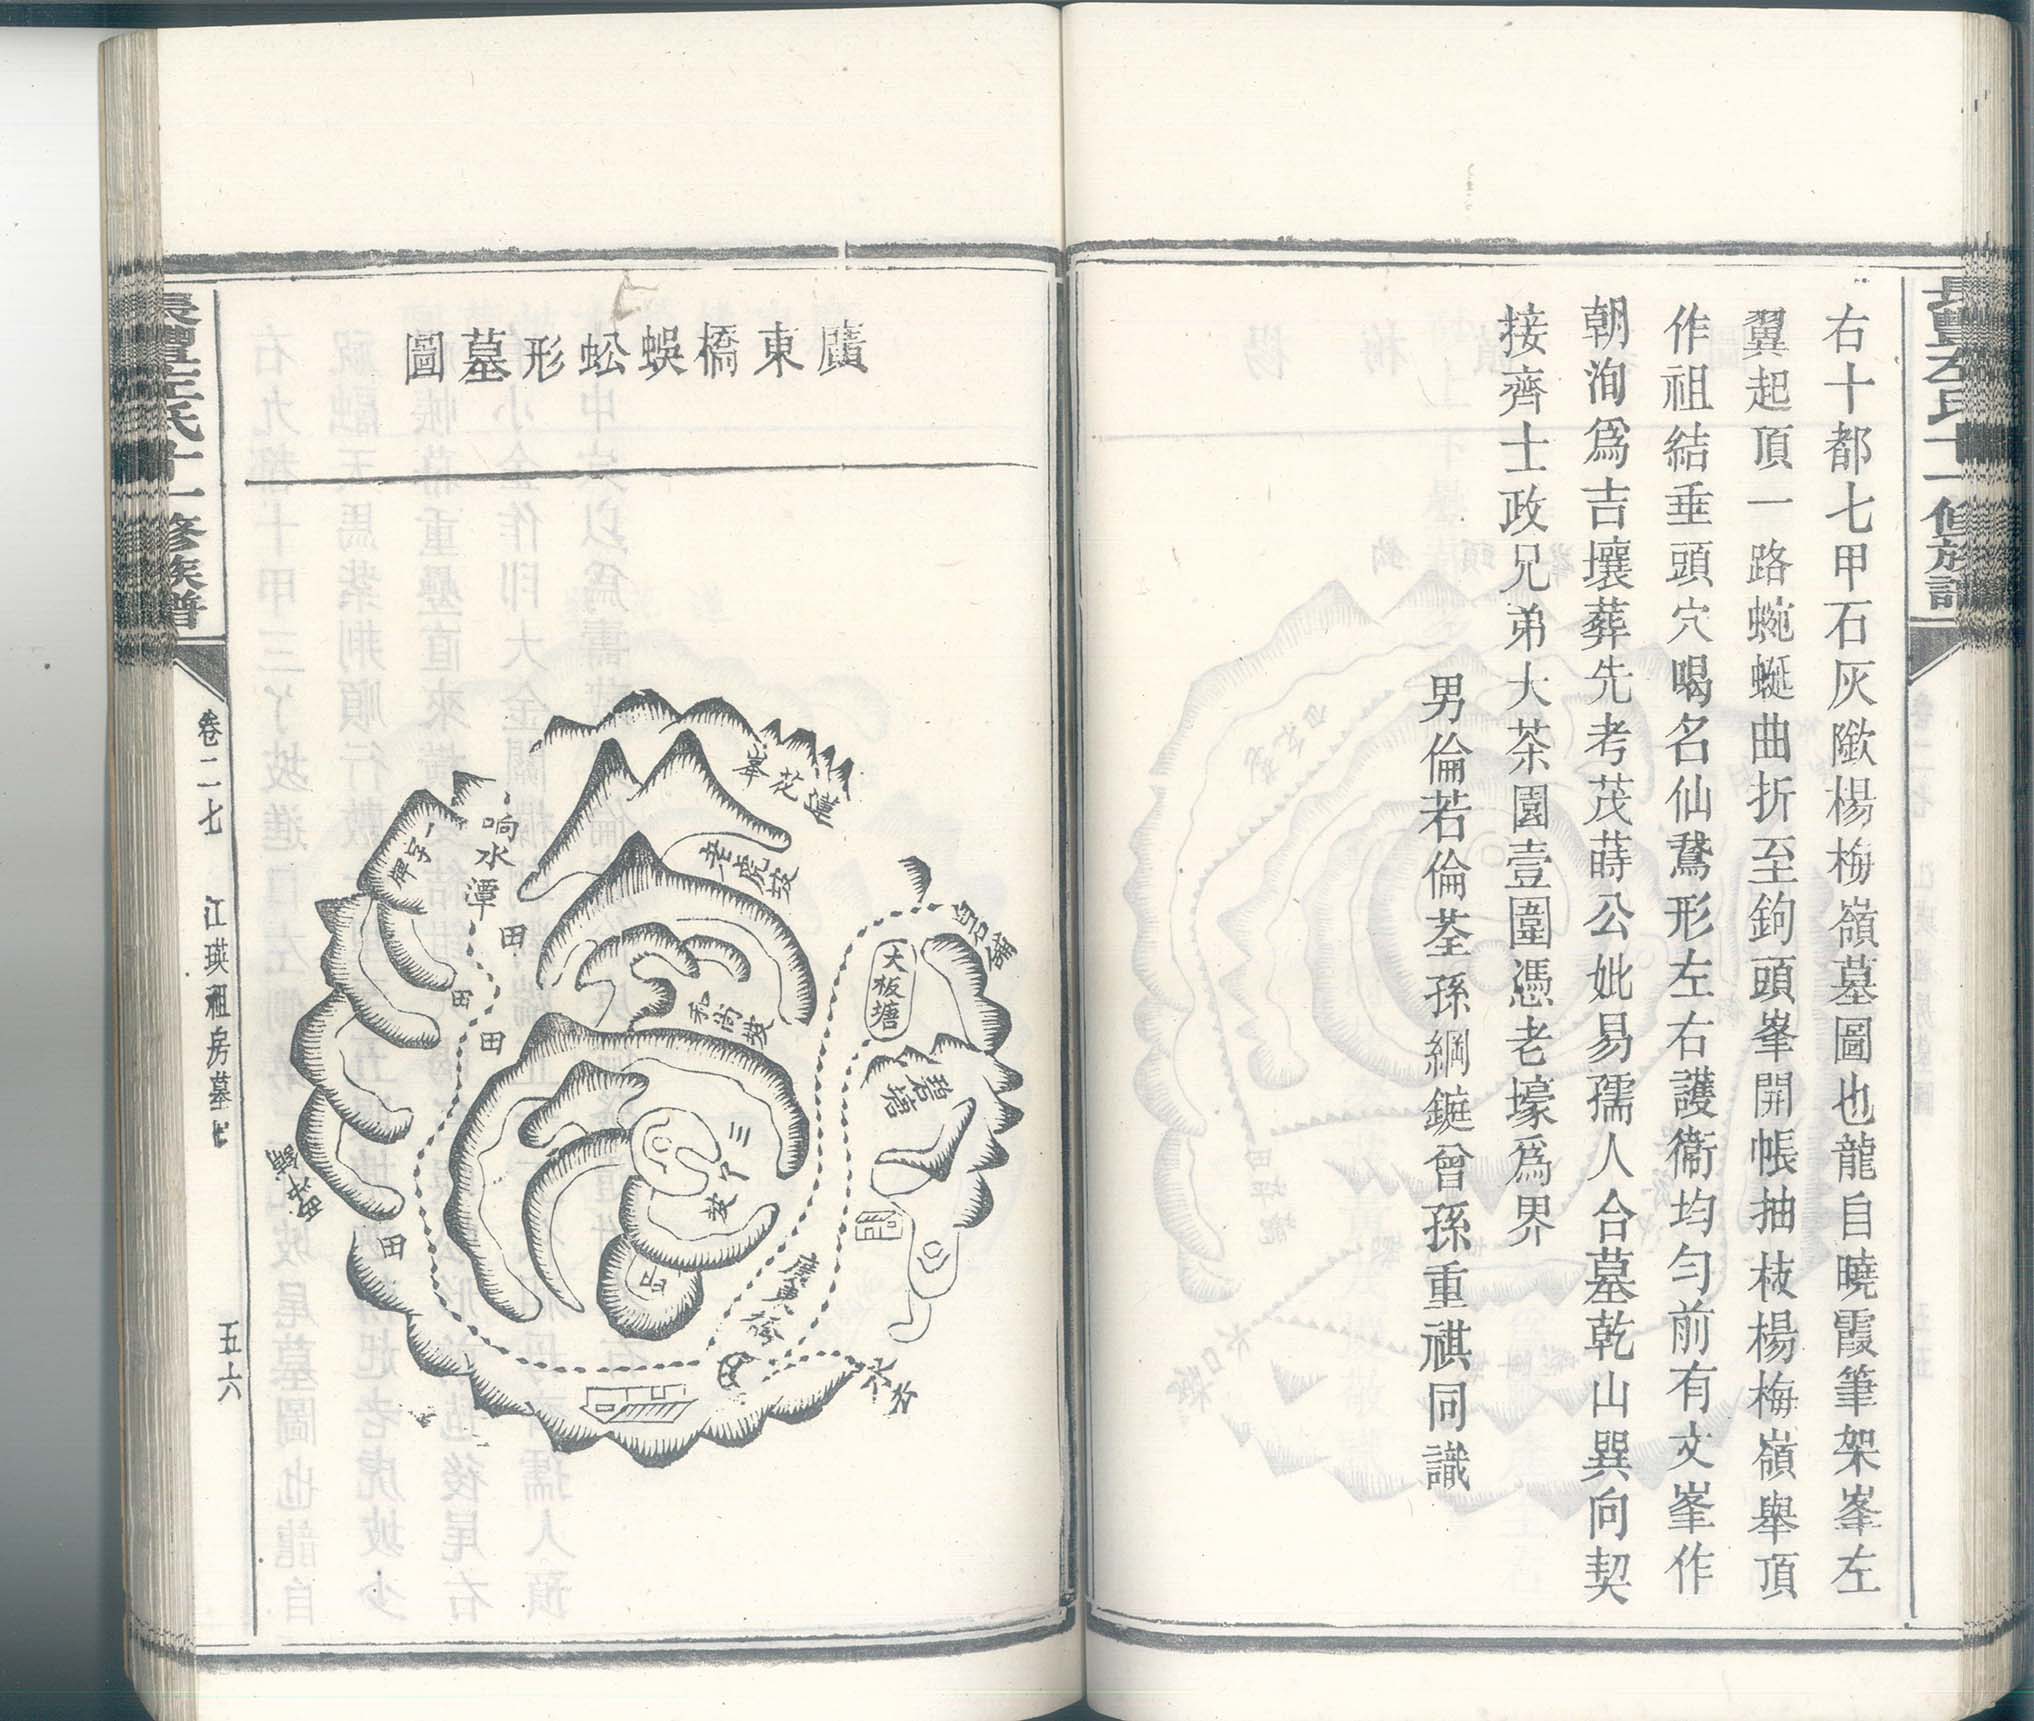 右十都七甲石灰隞楊梅嶺墓圖也龍自曉霞筆架峯左
翼起頂一路蜿蜒曲折至鉤頭峯開帳抽枝楊梅嶺舉頂
作祖結垂頭穴喝名仙鵞形左右護衞均勻前有文峯作
朝洵爲吉壤葬先考茂蒔公妣易孺人合墓乾山巽向契
接齊士政兄弟大茶園壹圍憑老壕爲界
男倫若倫荃孫綱鏇曾孫重祺同識
廣東橋蜈蚣形墓圖
蓮花峯
老虎坡
响水潭
一字碑
田
田
田
田
和尚坡
大板塘
白石鋪
碧塘
三丫坡
廣東橋
水口
氏十一修族譜
卷二七
江瑛祖房墓
五六